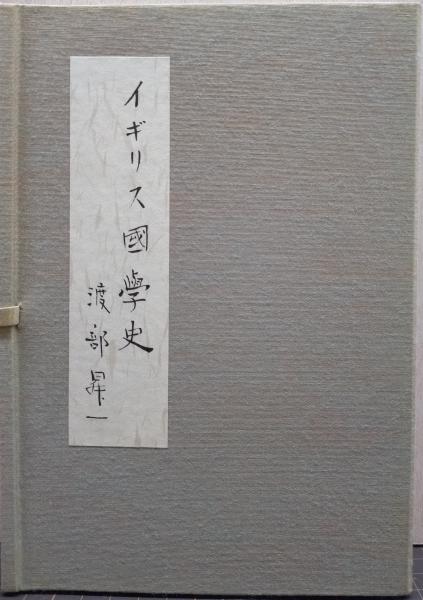 イギリス國學史
渡部昇一